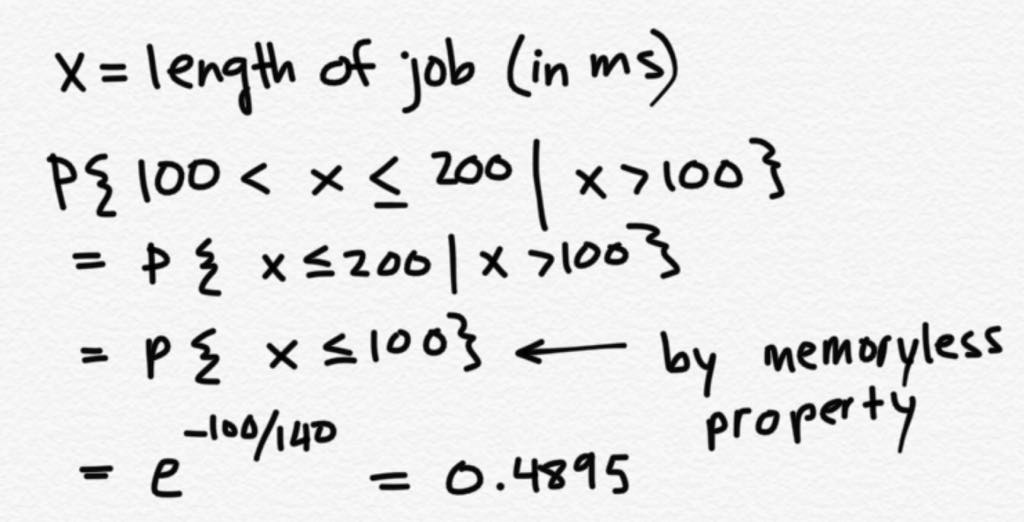 X = length of job (in ms)
P{ 100 < x ≤ 200 | x > 100 }
= P { x ≤ 200 | x > 100 }
= P { x ≤ 100 } ← by memoryless
property
= e^{-100/140} = 0.4895